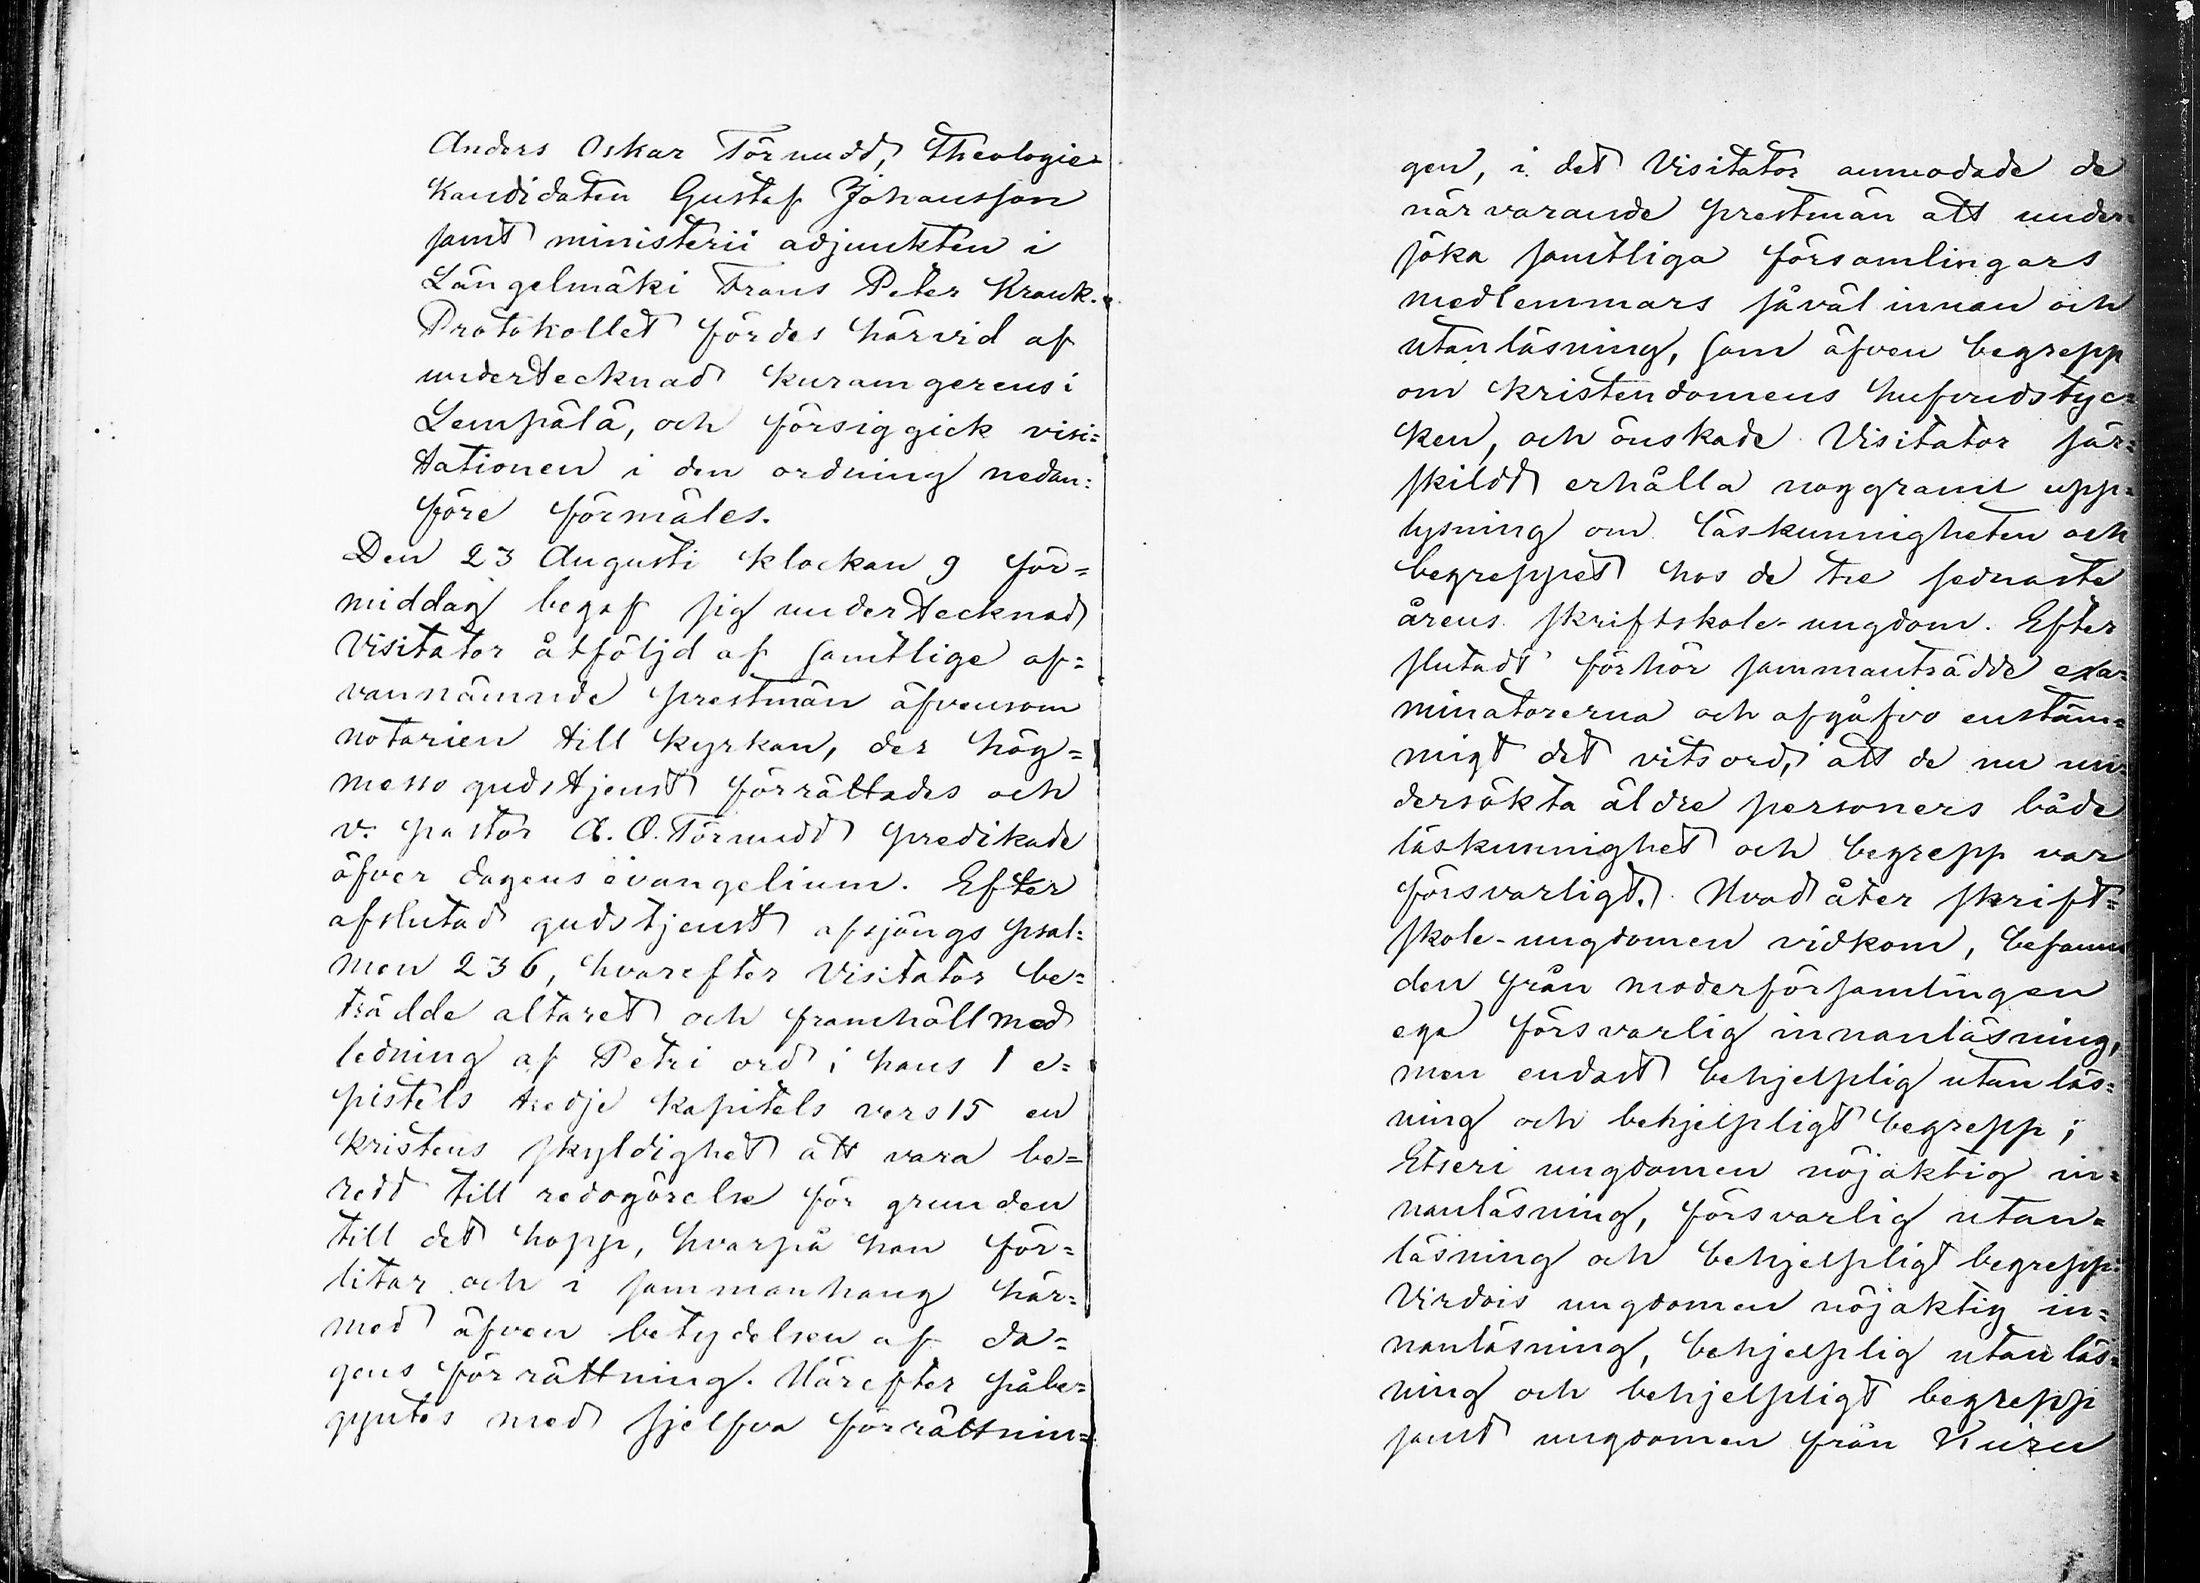 Anders Oskar Törnudd, Theologie
Kandidaten Gustaf Johansson
samt ministerii adjunkten i
Längelmäki Frans Peter Krank.
Protokollet fördes härvid af
undertecknad kuram gerens i
Lempälä, och försiggick visi=
tationen i den ordning nedan=
före förmäles.
Den 23 Augusti klockan 9 för=
middag begaf sig undertecknad
Visitator åtföljd af samtlige of=
vannämnde prestmän äfvensom
notarien till kyrkan, der hög=
messo gudstjenst förrättades och
v. pastor A. O. Törnudd predikade
öfver dagens evangelium. Efter
afslutad gudstjenst afsjöngs psal=
men 236, hvarefter Visitator be=
trädde altaret och framhöll med
ledning af Petri ord i hans 1 e=
pistels tredje kapitels vers 15 en
kristens skyldighet att vara be=
redd till redogörelse för grunden
till det hopp, hvarpå han för=
litar och i sammanhang här=
med äfven betydelsen af da=
gens förrättning. Härefter påbe=
gyntes med sjelfva förrättnin=
gen, i det Visitator anmodade de
närvarande prestmän att under=
söka samtliga församlingars
medlemmars såväl innan och
utanläsning, som äfven begrepp
om kristendomens hufvudstyc=
ken, och önskade Visitator sär=
skildt erhålla noggrann upp=
lysning om läskunnigheten och
begreppet hos de tre sednaste
årens skriftskole-ungdom. Efter
slutadt förhör sammanträdde exa=
minatorerna och afgåfvo enstäm=
migt det vitsord, att de nu un=
dersökta äldre personers både
läskunnighet och begrepp var
försvarligt. Hvad åter skrift=
skole-ungdomen vidkom, befanns
den från moderförsamlingen
ega försvarlig innanläsning,
men endast behjelplig utanläs=
ning och behjelpligt begrepp;
Etseri ungdomen nöjaktig in=
nanläsning, försvarlig utan=
läsning och behjelpligt begrepp;
Virdois ungdomen nöjaktig in=
nanläsning, behjelplig utanläs=
ning och behjelpligt begrepp
samt ungdomen från Kuru